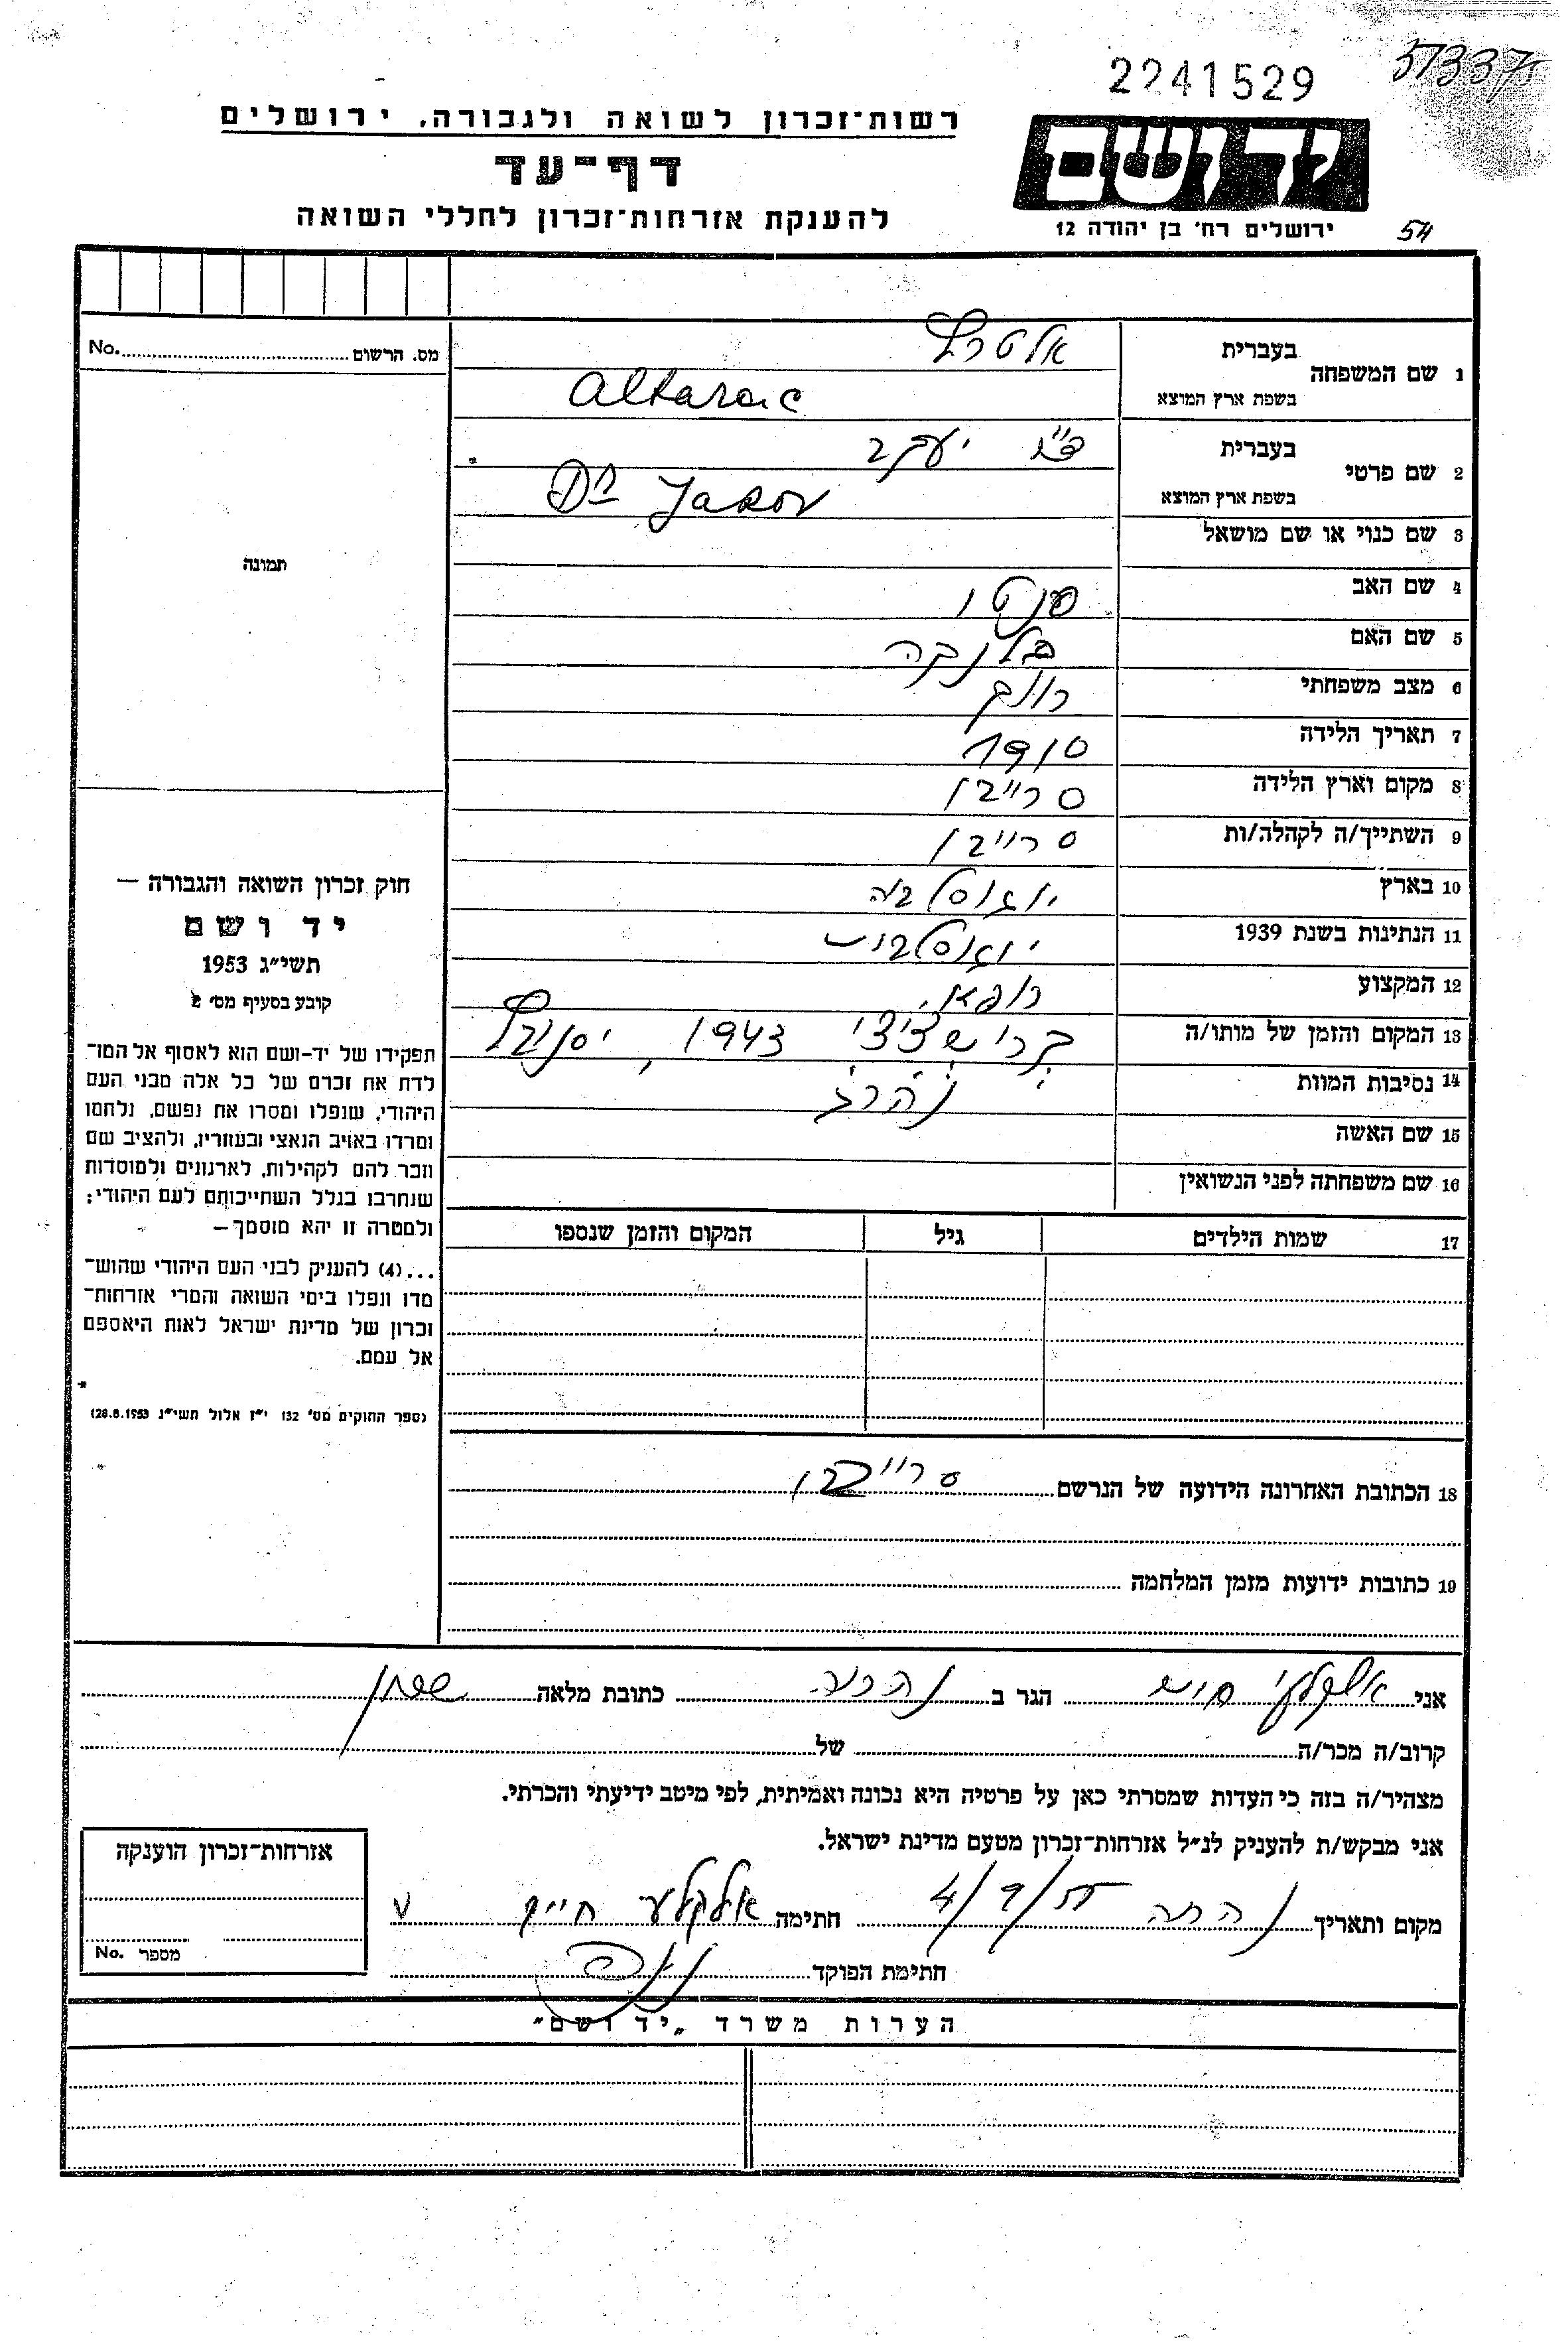 2241529
51337
רשות־זכרון לשואה ולגבורה, ירושלים
דף־עד
להענקת אזרחות־זכרון לחללי השואה
יד ושם
ירושלים רח׳ בן יהודה 12
54
מס. הרשום No.
תמונה
1 שם המשפחה
בעברית אלטרץ
בשפת ארץ המוצא Altarac
2 שם פרטי
בעברית ד״ר יעקב
בשפת ארץ המוצא Dr Jakov
3 שם כנוי או שם מושאל
4 שם האב סנטו
5 שם האם בלנקה
6 מצב משפחתי רווק
7 תאריך הלידה 1910
8 מקום וארץ הלידה סרייבו
9 השתייך/ה לקהלה/ות סרייבו
10 בארץ יוגוסלביה
11 הנתינות בשנת 1939
12 המקצוע רופא
13 המקום והזמן של מותו/ה 1943,
14 נסיבות המוות נהרג
15 שם האשה
16 שם משפחתה לפני הנשואין
17 שמות הילדים גיל המקום והזמן שנספו
18 הכתובת האחרונה הידועה של הנרשם סרייבו
19 כתובות ידועות מזמן המלחמה
חוק זכרון השואה והגבורה —
יד ושם
תשי״ג 1953
קובע בסעיף מס׳ 2
תפקידו של יד-ושם הוא לאסוף אל המו־
לדת את זכרם של כל אלה מבני העם
היהודי, שנפלו ומסרו את נפשם, נלחמו
ומרדו באויב הנאצי ובעוזריו, ולהציב שם
וזכר להם לקהילות, לארגונים ולמוסדות
שנחרבו בגלל השתייכותם לעם היהודי;
ולמטרה זו יהא מוסמך —
...(4) להעניק לבני העם היהודי שהוש־
מדו ונפלו בימי השואה והמרי אזרחות־
זכרון של מדינת ישראל לאות היאספם
אל עמם.
(ספר החוקים מס׳ 132 י״ז אלול תשי״ג 28.8.1953)
אני אלקלעי חיים הגר ב נהריה כתובת מלאה
קרוב/ה מכר/ה של
מצהיר/ה בזה כי העדות שמסרתי כאן על פרטיה היא נכונה ואמיתית, לפי מיטב ידיעתי והכרתי.
אני מבקש/ת להעניק לנ״ל אזרחות־זכרון מטעם מדינת ישראל.
מקום ותאריך נהריה 4/9/55 חתימה אלקלעי חיים
חתימת הפוקד
אזרחות־זכרון הוענקה
מספר No.
הערות משרד „יד ושם״